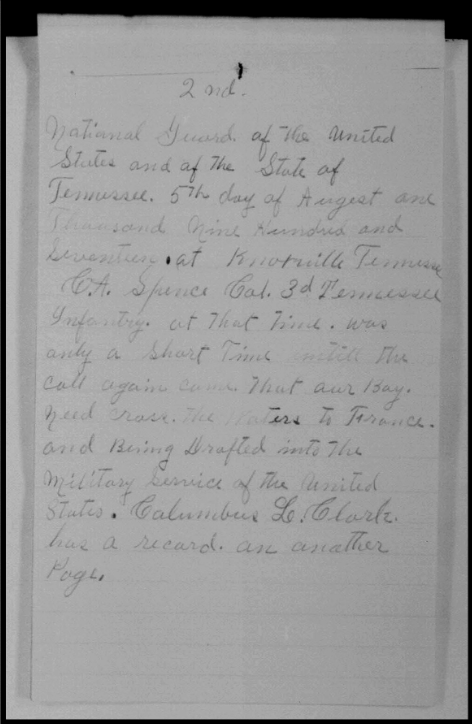 2nd.
National Guard. of the United
States and of the State of
Tennessee. 5th day of Augest one
Thousand Nine Hundred and
Seventeen. at Knoxville Tennessee
CA. Spence Col. 3d Tennessee
Infantry. at That Time. was
only a Short Time untill the
call again came That our Boy.
Need cross. the Waters to France.
and Being Drafted into The
Military Service of the United
States. Columbus L. Clark.
has a record. on another
Page.